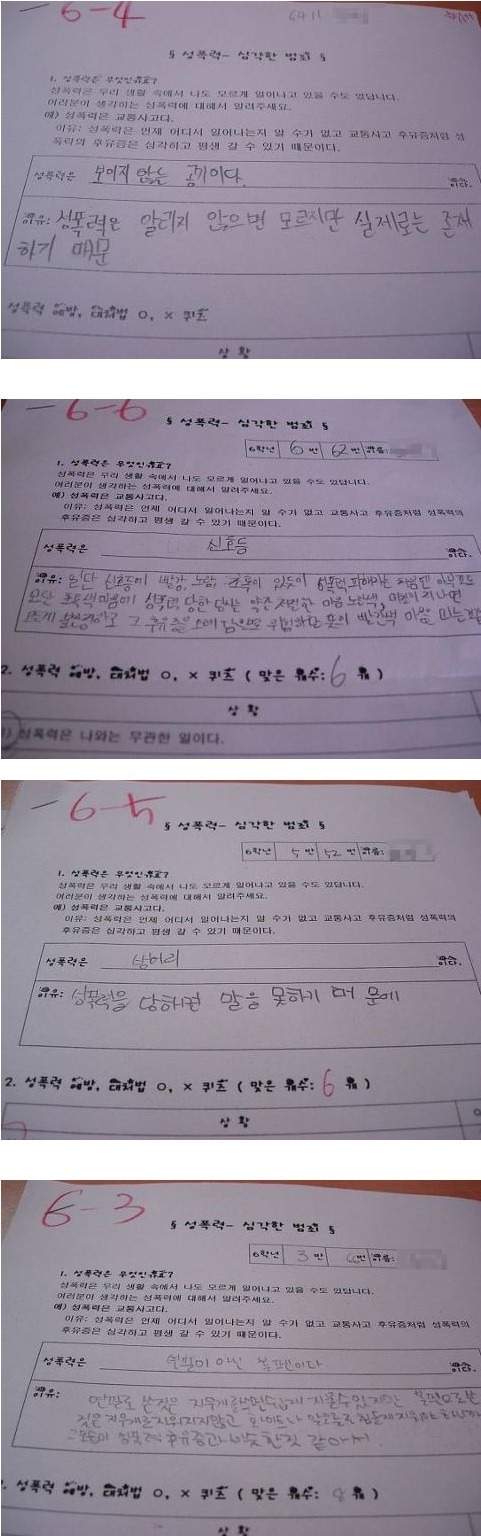 6-4
§ 성폭력- 심각한 범죄 §
1. 성폭력은 무엇인가요?
성폭력은 우리 생활 속에서 나도 모르게 일어나고 있을 수도 있답니다.
여러분이 생각하는 성폭력에 대해서 알려주세요.
예) 성폭력은 교통사고다.
이유: 성폭력은 언제 어디서 일어나는지 알 수가 없고 교통사고 후유증처럼 성
폭력의 후유증은 심각하고 평생 갈 수 있기 때문이다.
성폭력은 보이지 않는 공기이다. 이다.
이유: 성폭력은 알리지 않으면 모르지만 실제로는 존재
하기 때문
성폭력 예방, 대처법 O, × 퀴즈
상 황
6-6
§ 성폭력- 심각한 범죄 §
6학년 6 반 62 번 이름:
1. 성폭력은 무엇인가요?
성폭력은 우리 생활 속에서 나도 모르게 일어나고 있을 수도 있답니다.
여러분이 생각하는 성폭력에 대해서 알려주세요.
예) 성폭력은 교통사고다.
이유: 성폭력은 언제 어디서 일어나는지 알 수가 없고 교통사고 후유증처럼 성폭력의
후유증은 심각하고 평생 갈 수 있기 때문이다.
성폭력은 신호등 이다.
이유: 일단 신호등이 빨강, 노랑, 초록이 있듯이 성폭력 피해자는 처음엔
초록색마음에 성폭력 당한 마음 노란색,
그 후유증 빨간색 마음
2. 성폭력 예방, 대처법 O, × 퀴즈 ( 맞은 개수: 6 개 )
상 황
1) 성폭력은 나와는 무관한 일이다.
6-5
§ 성폭력- 심각한 범죄 §
6학년 5 반 52 번 이름:
1. 성폭력은 무엇인가요?
성폭력은 우리 생활 속에서 나도 모르게 일어나고 있을 수도 있답니다.
여러분이 생각하는 성폭력에 대해서 알려주세요.
예) 성폭력은 교통사고다.
이유: 성폭력은 언제 어디서 일어나는지 알 수가 없고 교통사고 후유증처럼 성폭력의
후유증은 심각하고 평생 갈 수 있기 때문이다.
성폭력은 벙어리 이다.
이유: 성폭력을 당하면 말을 못하기 때 문에
2. 성폭력 예방, 대처법 O, × 퀴즈 ( 맞은 개수: 6 개 )
상 황
6-3
§ 성폭력- 심각한 범죄 §
6학년 3 반 번 이름:
1. 성폭력은 무엇인가요?
성폭력은 우리 생활 속에서 나도 모르게 일어나고 있을 수도 있답니다.
여러분이 생각하는 성폭력에 대해서 알려주세요.
예) 성폭력은 교통사고다.
이유: 성폭력은 언제 어디서 일어나는지 알 수가 없고 교통사고 후유증처럼 성폭력의
후유증은 심각하고 평생 갈 수 있기 때문이다.
성폭력은 연필이 아닌 볼펜이다 이다.
이유: 연필로 쓴것은 지우개로 쉽게 지울수있지만 볼펜으로쓴
것은 지우개로 지워지지않고
성폭력 후유증과 비슷한것 같아서.
성폭력 예방, 대처법 O, × 퀴즈 ( 맞은 개수: 8 개 )
상 황